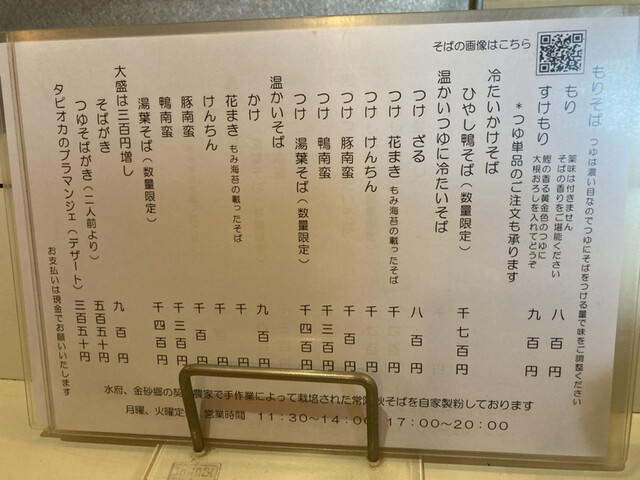 そばの画像はこちら
もりそば つゆは濃い目なのでつゆにそばをつける量で味をご調整ください
もり 薬味は付きません そばの香りをご堪能ください 八百円
すけもり 鰹の香る黄金色のつゆに 大根おろしを入れてどうぞ 九百円
*つゆ単品のご注文も承ります
冷たいかけそば
ひやし鴨そば(数量限定) 千七百円
温かいつゆに冷たいそば
つけ ざる 八百円
つけ 花まき もみ海苔の載ったそば 千円
つけ けんちん 千円
つけ 豚南蛮 千百円
つけ 鴨南蛮 千三百円
つけ 湯葉そば(数量限定) 千四百円
温かいそば
かけ 九百円
花まき もみ海苔の載ったそば 千円
けんちん 千円
豚南蛮 千百円
鴨南蛮 千三百円
湯葉そば(数量限定) 千四百円
大盛は三百円増し
そばがき 九百円
つゆそばがき(二人前より) 五百五十円
タピオカのブラマンジェ(デザート) 三百五十円
お支払いは現金でお願いいたします
水府、金砂郷の契 農家で手作業によって栽培された常陸秋そばを自家製粉しております
月曜、火曜定 営業時間 11:30~14:00 17:00~20:00